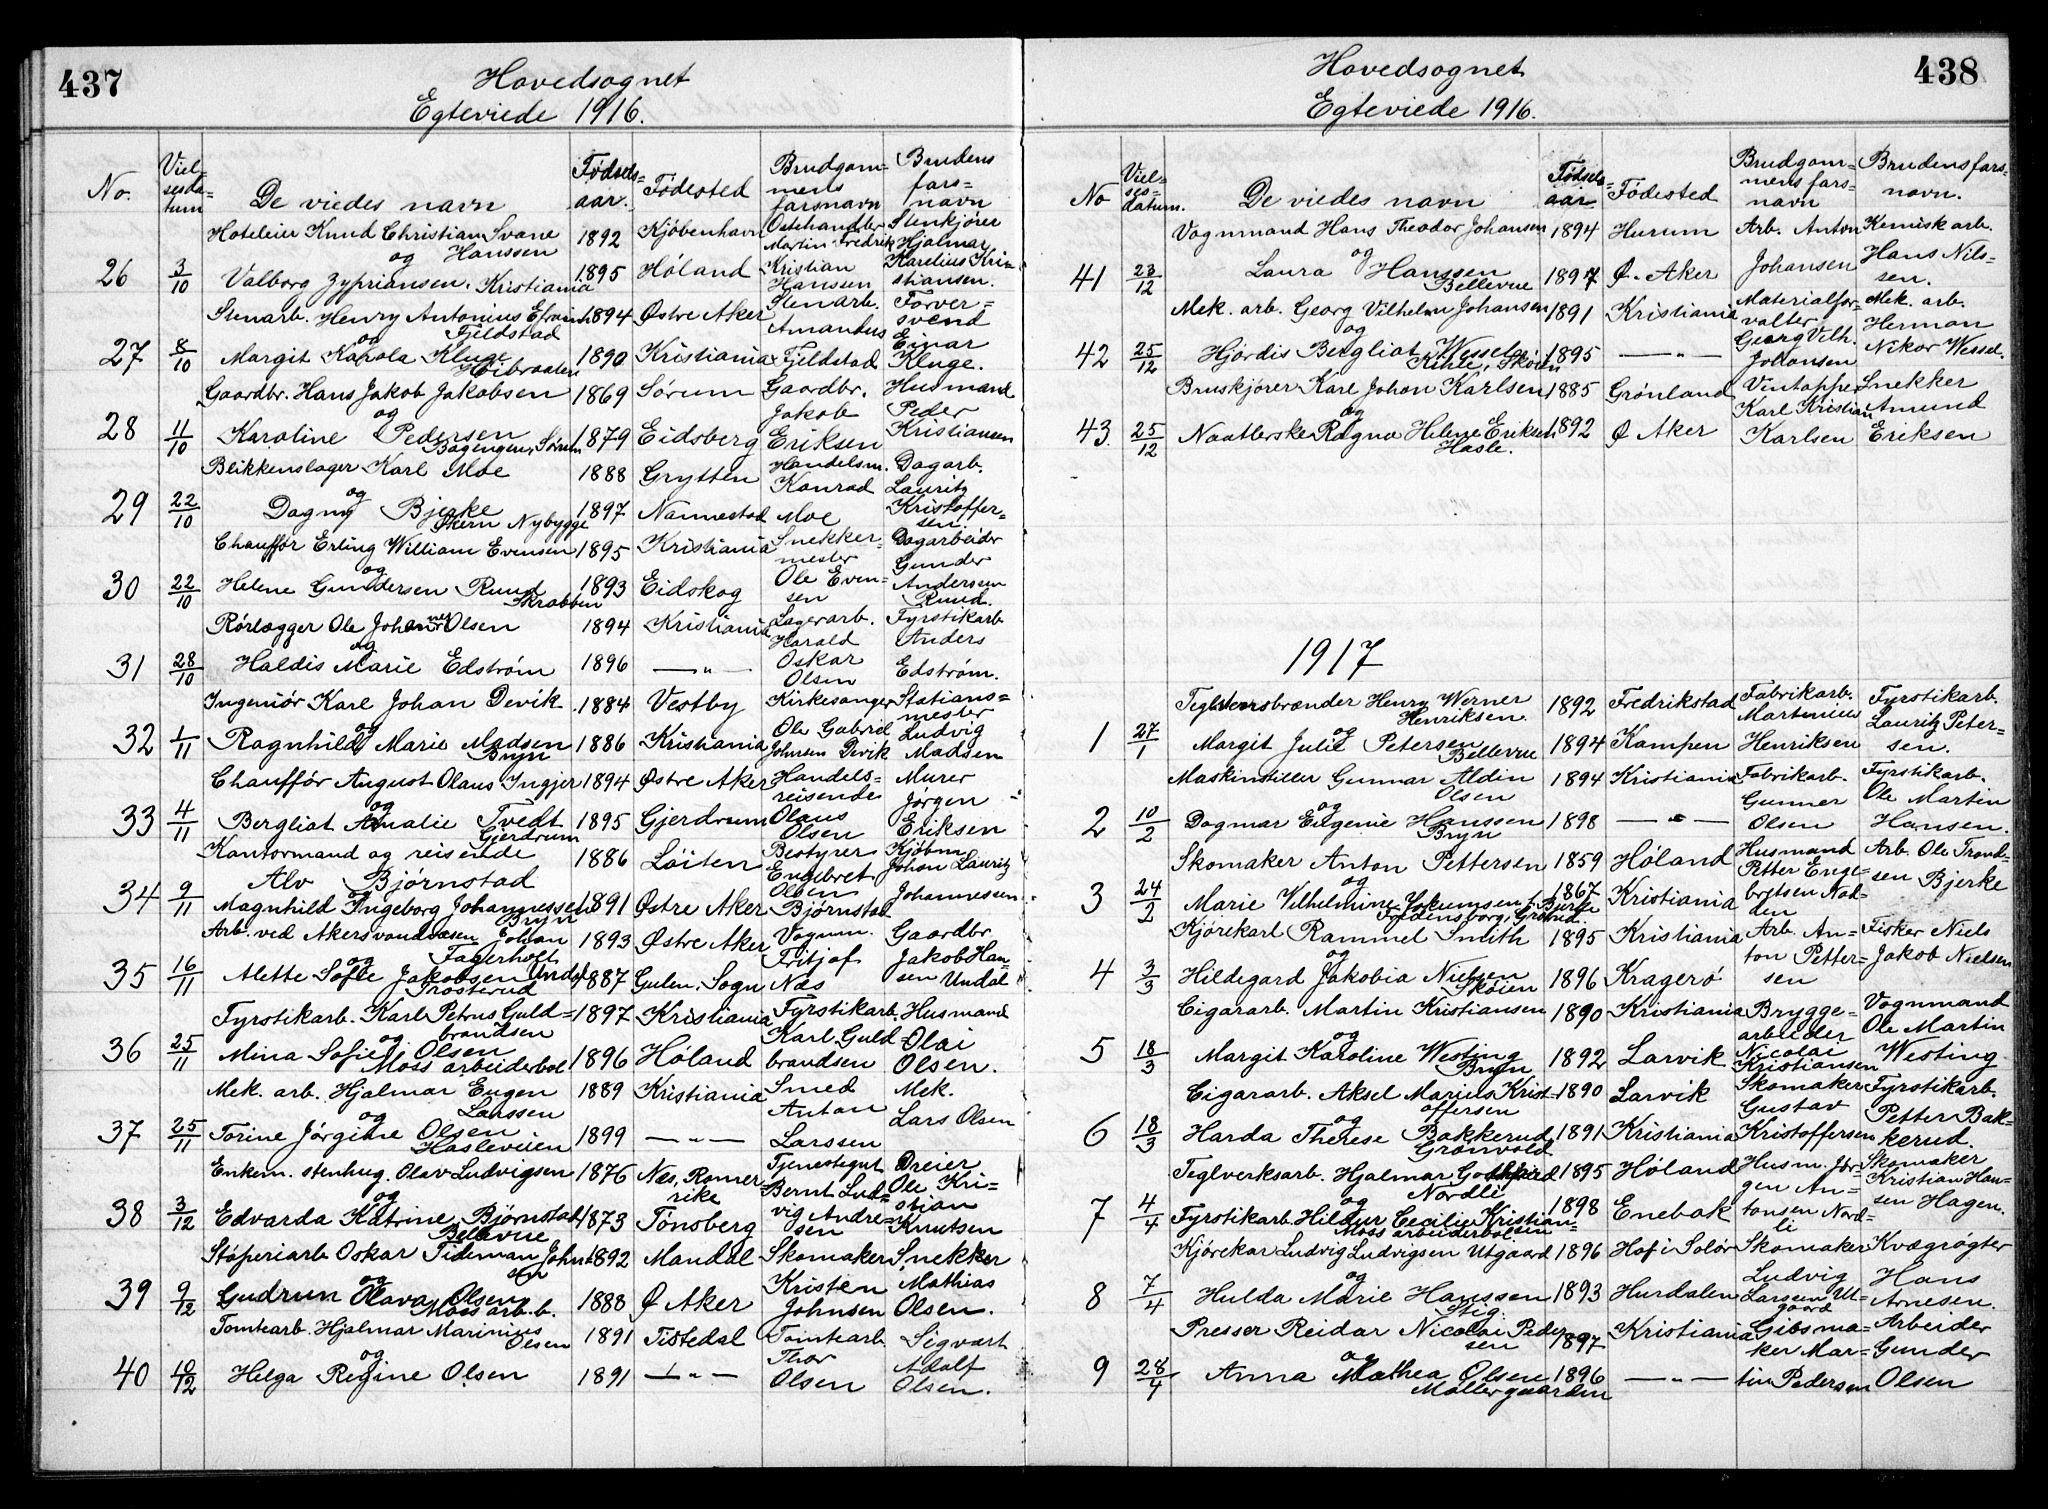 437
Hovedsognet
Egteviede 1916.
No. Vielsesdatum De viedes navn Fødselsaar. Fødested Brudgommens farsnavn Brudens farsnavn
Hoteleier Knud Christian Svane Hanssen 1892 Kjøbenhavn Ostehandler Martin Fredrik Kristian Hanssen
og
26 3/10 Valborg Zypriansen. Kristiania 1895 Høland Stenkjører Hjalmar Karelius Kristiansen.
Stenarb. Henry Antonius Efraim Fjeldstad 1894 Østre Aker Stenarb. Amandus Fjeldstad
og
27 8/10 Margit Karola Kluge Hoibraaten 1890 Kristiania Farversvend Einar Kluge.
Gaardbr. Hans Jakob Jakobsen 1869 Sørum Gaardbr. Jakob Eriksen
og
28 11/10 Karoline Pedersen Bagengen, Sørum 1879 Eidsberg Husmand Peder Kristiansen
Blikkenslager Karl Moe 1888 Grytten Handelsm. Konrad Moe
og
29 22/10 Dagny Bjerke Skern Nybygge 1897 Nannestad Dagarb. Lauritz Kristoffersen
Chauffør Erling William Evensen 1895 Kristiania Snekkermester Ole Evensen
og
30 22/10 Helene Gundersen Ruud Skrabben 1893 Eidskog Dagarbeider Gunder Andersen Ruud.
Rørlægger Ole Johannes Olsen 1894 Kristiania Lagerarb. Harald Oskar Olsen
og
31 28/10 Haldis Marie Edstrøm 1896 — " — Fyrstikarb Anders Edstrøm.
Ingeniør Karl Johan Devik 1884 Vestby Kirkesanger Ole Gabriel Johnsen Devik
og
32 1/11 Ragnhild Marie Madsen Bryn 1886 Kristiania Stationsmester Ludvig Madsen
Chauffør August Olaus Ingjer 1894 Østre Aker Handelsreisende Olaus Olsen
og
33 4/11 Bergliot Amalie Tvedt Gjerdrum 1895 Gjerdrum Murer Jørgen Eriksen
Kontormand og reisende Alv Bjørnstad 1886 Løiten Bestyrer Engebret Olsen Bjørnstad
og
34 9/11 Magnhild Ingeborg Johannessen Bryn 1891 Østre Aker Kjøbm Johan Lauritz Johannessen
Arb. ved Akersvandvæsen Johan Fagerholt 1893 Østre Aker Vognm. Fritjof Næs
og
35 16/11 Alette Sofie Jakobsen Undal Trosterud 1887 Gulen, Sogn Gaardbr Jakob Hansen Undal
Fyrstikarb. Karl Petrus Guldbrandsen 1897 Kristiania Fyrstikarb. Karl Guldbrandsen
og
36 25/11 Mina Sofie Olsen Moss arbeiderbol 1896 Høland Husmand Olai Olsen.
Mek. arb. Hjalmar Eugen Larssen 1889 Kristiania Smed Anton Larssen
og
37 25/11 Torine Jørgine Olsen Hasleveien 1899 — " — Mek. Lars Olsen
Enkem. stenhug. Olav Ludvigsen 1876 Nes, Romerike Tjenestegut Bernt Ludvig Andresen
og
38 3/12 Edvarda Katrine Bjørnstad Bellevue 1873 Tønsberg Dreier Ole Kristian Knutsen
Støperiarb Oskar Tideman Johnsen 1892 Mandal Skomaker Kristen Johnsen
og
39 9/12 Gudrun Olava Olsen Moss arb. b. 1888 Ø Aker Snekker Mathias Olsen.
Tomtearb. Hjalmar Marinius Olsen 1891 Tistedal Tomtearb. Thor Olsen
og
40 10/12 Helga Regine Olsen 1891 — " — Sigvart Adolf Olsen.
438
Hovedsognet
Egteviede 1916.
No Vielsesdatum. De viedes navn Fødselsaar Fødested Brudgommens farsnavn Brudens farsnavn.
Vognmand Hans Theodor Johansen 1894 Hurum Arb. Anton Johansen
og
41 23/12 Laura Hanssen Bellevue 1897 Ø. Aker Kemisk arb. Hans Nilssen.
Mek. arb. Georg Vilhelm Johansen 1891 Kristiania Materialforvalter Georg Vilh. Johansen
og
42 25/12 Hjørdis Bergliot Wessel Kihle, Skøien 1895 — " — Mek. arb. Herman Nikor Wessel.
Bruskjører Karl Johan Karlsen 1885 Grønland Vintapper Karl Kristian Karlsen
og
43. 25/12 Naatlerske Ragna Helene Eriksen Hasle. 1892 Ø Aker Snekker Amund Eriksen
1917
Teglverksbrænder Henry Werner Henriksen. 1892 Fredrikstad Fabrikarb. Martinius Henriksen
og
1 27/1 Margit Julie Petersen Bellevue 1894 Kampen Fyrstikarb. Lauritz Petersen.
Maskinstiller Gunnar Aldin Olsen 1894 Kristiania Fabrikarb. Gunner Olsen
og
2 10/2 Dagmar Eugenie Hanssen Bryn 1898 — " — Fyrstikarb. Ole Martin Hansen.
Skomaker Anton Pettersen 1859 Høland Husmand Petter Engebretsen Nadden
og
3 24/2 Marie Vilhelmine Jokumsen f. Bjerke Fredensborg, Grorud. 1867 Kristiania Arb. Ole Trondsen Bjerke
Kjørekarl Rammel Smith 1895 Kristiania Arb. Anton Pettersen
og
4 3/3 Hildegard Jakobia Nielsen Skøien 1896 Kragerø Fisker Niels Jakob Nielsen
Cigararb. Martin Kristiansen 1890 Kristiania Bryggearbeider Nicolai Kristiansen
og
5 18/3 Margit Karoline Westing Bryn 1892 Larvik Vognmand Ole Martin Westing
Cigararb. Aksel Marius Kristoffersen 1890 Larvik Skomaker Gustav Kristoffersen
og
6 18/3 Harda Therese Bakkerud Grønvold 1891 Kristiania Fyrstikarb. Petter Bakkerud.
Teglverksarb. Hjalmar Gotfried Nordli 1895 Høland Husm. Jørgen Antonsen Nordli
og
7 4/4 Fyrstikarb. Hildur Cecilie Kristiansen Moss arbeiderbol 1898 Enebak Skomaker Kristian Hansen Hagen.
Kjørekar Ludvig Ludvigsen Utgaard 1896 Hof i Solør Skomaker Ludvig Larsen Utgaard
og
8 7/4 Hulda Marie Hanssen Stig. 1893 Hurdalen Kvægrøgter Hans Arnesen.
Presser Reidar Nicolai Pedersen 1897 Kristiania Gibsmaker Martin Pedersen
og
9 28/4 Anna Mathea Olsen Møllergaarden 1896 — " — Arbeider Gunder Olsen